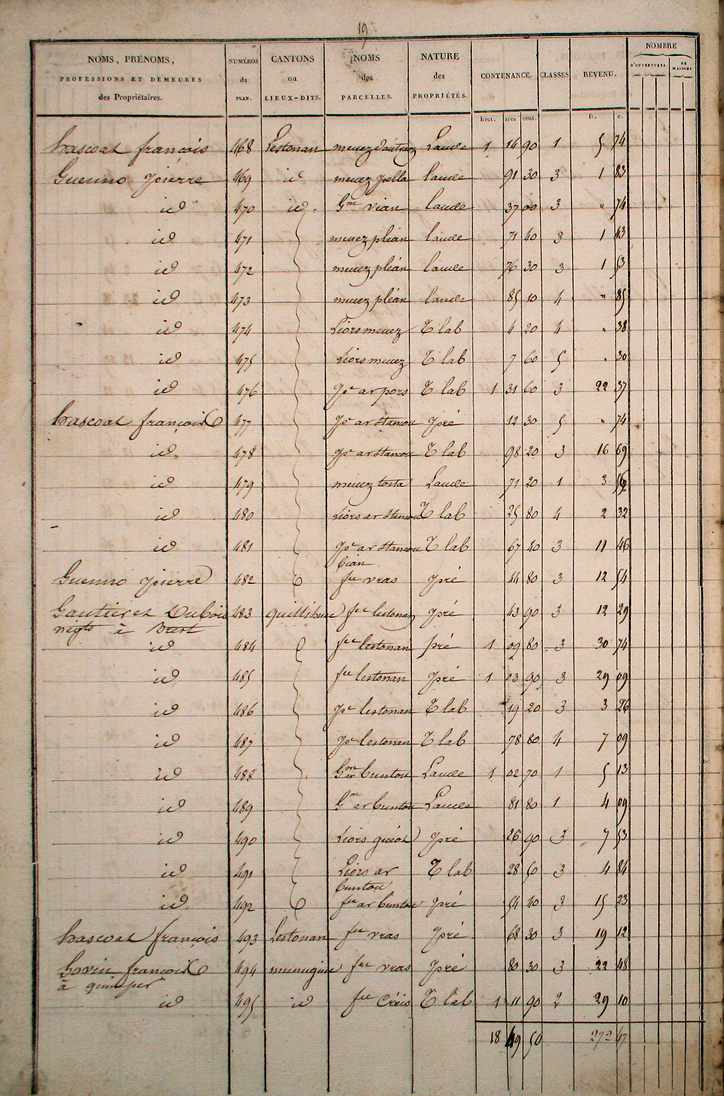 19
NOMS, PRÉNOMS, PROFESSIONS ET DEMEURES des Propriétaires. NUMÉROS du PLAN. CANTONS ou LIEUX-DITS. NOMS des PARCELLES. NATURE des PROPRIÉTÉS. CONTENANCE. CLASSES. REVENU. NOMBRE D'OUVERTURES DE MAISONS
hect. ares cent. fr. c.
hascoat françois 468 Lestonan menez Lande 1 16 90 1 5 74
Guenno pierre 469 id menez pella lande 91 30 3 1 83
id 470 id Gm vian lande 37 00 3 " 74
id 471 menez plean lande 71 40 3 1 43
id 472 menez plean lande 76 30 3 1 53
id 473 menez plean lande 85 10 4 " 85
id 474 Liors menez T lab 4 20 4 " 38
id 475 Liors menez T lab 7 60 5 " 30
id 476 pc ar pors T lab 1 31 60 3 22 37
hascoat françois 477 pc ar stancou pré 12 30 5 " 74
id 478 pc ar stancou T lab 98 20 3 16 69
id 479 menez torta Lande 71 20 1 3 56
id 480 Liors ar stancou T lab 25 80 4 2 32
id 481 pc ar stancou bian T lab 67 40 3 11 46
Guenno pierre 482 fec vras pré 44 80 3 12 54
Gautier et Dubois 483 quillihuec fec lestonan pré 43 90 3 12 29
negts à Brest
id 484 fec lestonan pré 1 09 80 3 30 74
id 485 fec lestonan pré 1 03 90 3 29 09
id 486 pc lestonan T lab 19 20 3 3 26
id 487 pc lestonan T lab 78 80 4 7 09
id 488 Gm ar buntou Lande 1 02 70 1 5 13
id 489 Gm ar buntou Lande 81 80 1 4 09
id 490 Liors guéot pré 26 90 3 7 53
id 491 Liors ar buntou T lab 28 50 3 4 84
id 492 fec ar buntou pré 54 40 3 15 23
hascoat françois 493 Lestonan fec vras pré 68 30 3 19 12
françois 494 fec vras pré 80 30 3 22 48
à quimper
id 495 id fec Créis T lab 1 11 90 2 29 10
18 49 50 272 47